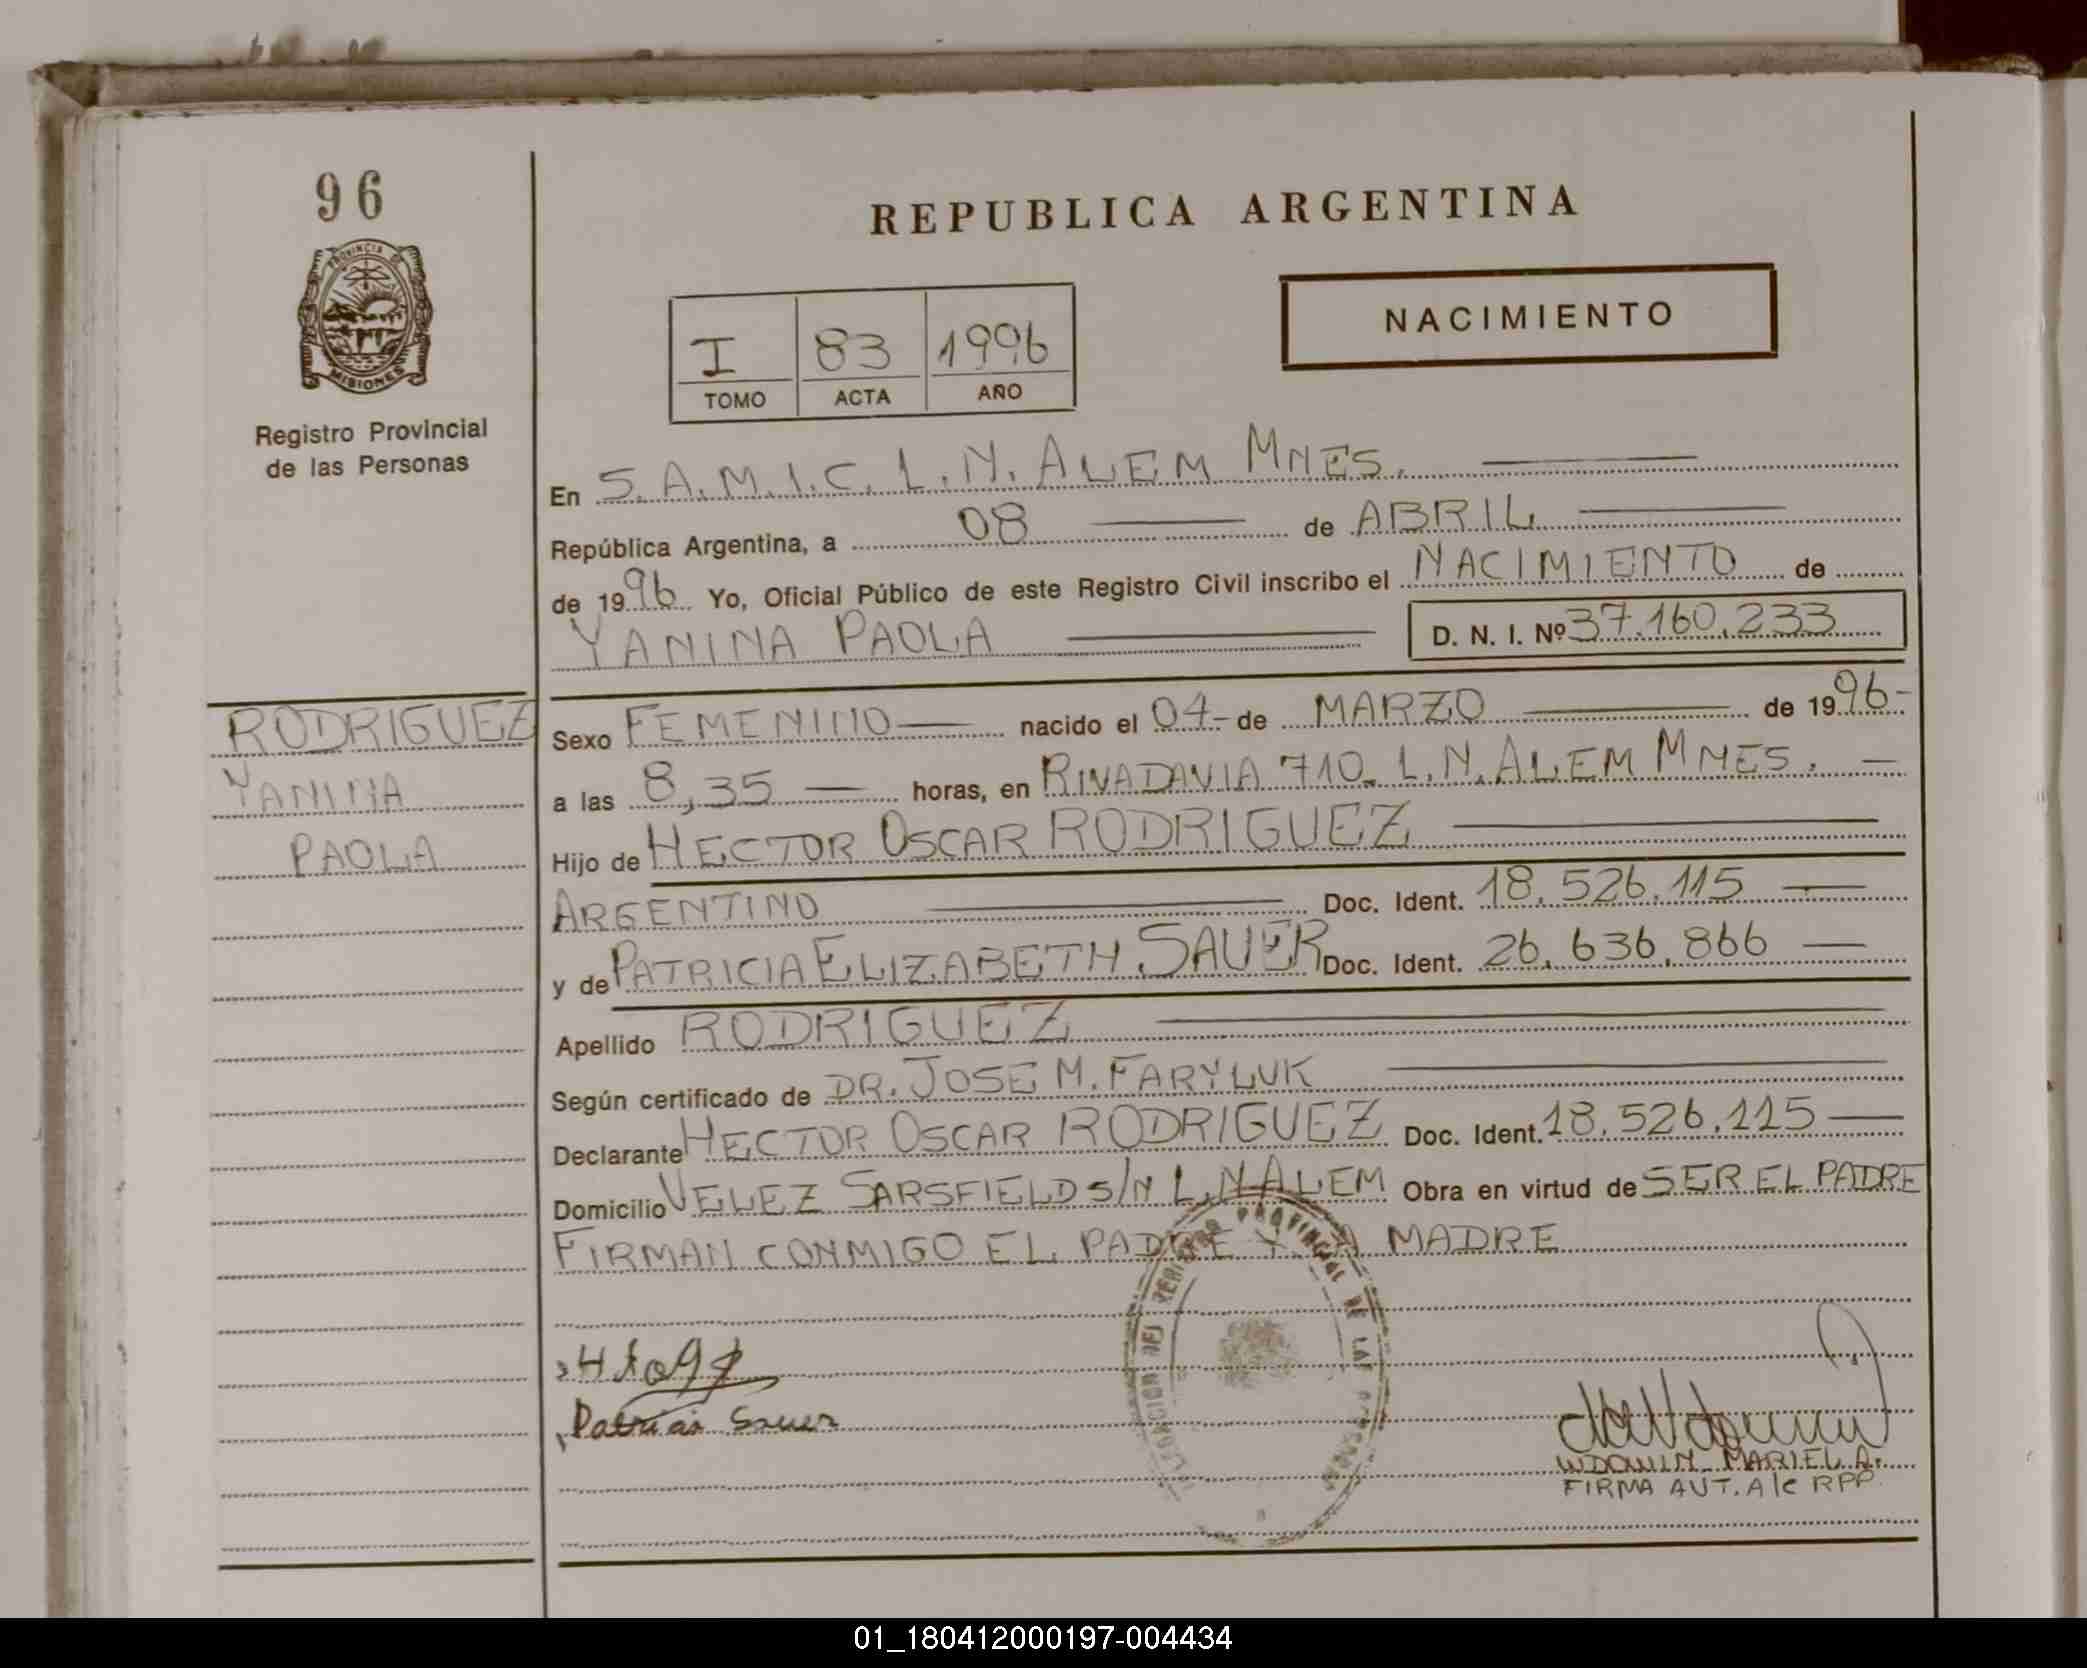 96
PROVINCIA DE
MISIONES
Registro Provincial
de las Personas
REPUBLICA ARGENTINA
NACIMIENTO
I 83 1996
TOMO ACTA AÑO
En S.A.M.I.C. L.N. ALEM MNES.
República Argentina, a 08 de ABRIL
de 1996 Yo, Oficial Público de este Registro Civil inscribo el NACIMIENTO de
YANINA PAOLA D. N. I. Nº 37.160.233
RODRIGUEZ
YANINA
PAOLA
Sexo FEMENINO nacido el 04 de MARZO de 1996
a las 8,35 horas, en RIVADAVIA 710. L.N. ALEM MNES.
Hijo de HECTOR OSCAR RODRIGUEZ
ARGENTINO Doc. Ident. 18.526.115
y de PATRICIA ELIZABETH SAUER Doc. Ident. 26.636.866
Apellido RODRIGUEZ
Según certificado de DR. JOSE M. FARYLUK
Declarante HECTOR OSCAR RODRIGUEZ Doc. Ident. 18.526.115
Domicilio VELEZ SARSFIELD S/N L.N ALEM Obra en virtud de SER EL PADRE
FIRMAN CONMIGO EL PADRE Y LA MADRE
PROVINCIAL DE LAS PERSONAS
Patricia Sauer
WDOWIN MARIEL A.
FIRMA AUT. A/C RPP
01_180412000197-004434